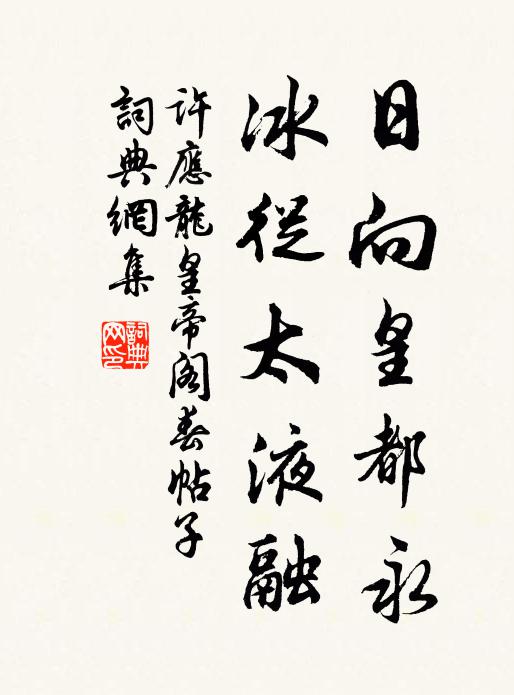 日向皇都永
冰從太液融
許應龍皇帝閣春帖子
詞典網集
詞典網印